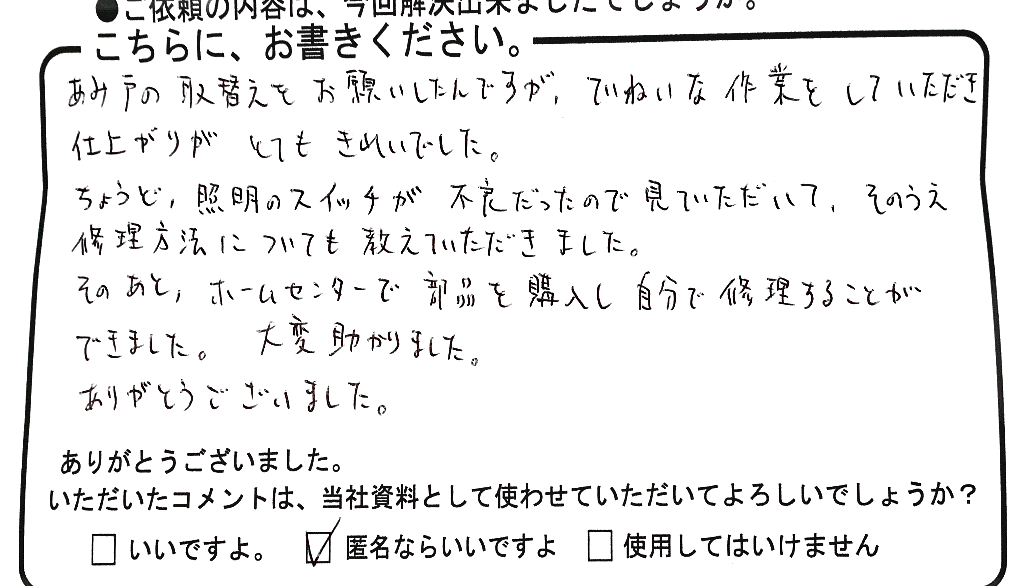 ●ご依頼の内容は、今回解決出来ましたでしょうか。
こちらに、お書きください。
あみ戸の取替えをお願いしたんですが、ていねいな作業をしていただき
仕上がりがとてもきれいでした。
ちょうど、照明のスイッチが不良だったので見ていただいて、そのうえ
修理方法についても教えていただきました。
そのあと、ホームセンターで部品を購入し自分で修理することが
できました。大変助かりました。
ありがとうございました。
ありがとうございました。
いただいたコメントは、当社資料として使わせていただいてよろしいでしょうか？
□いいですよ。 ☑匿名ならいいですよ □使用してはいけません